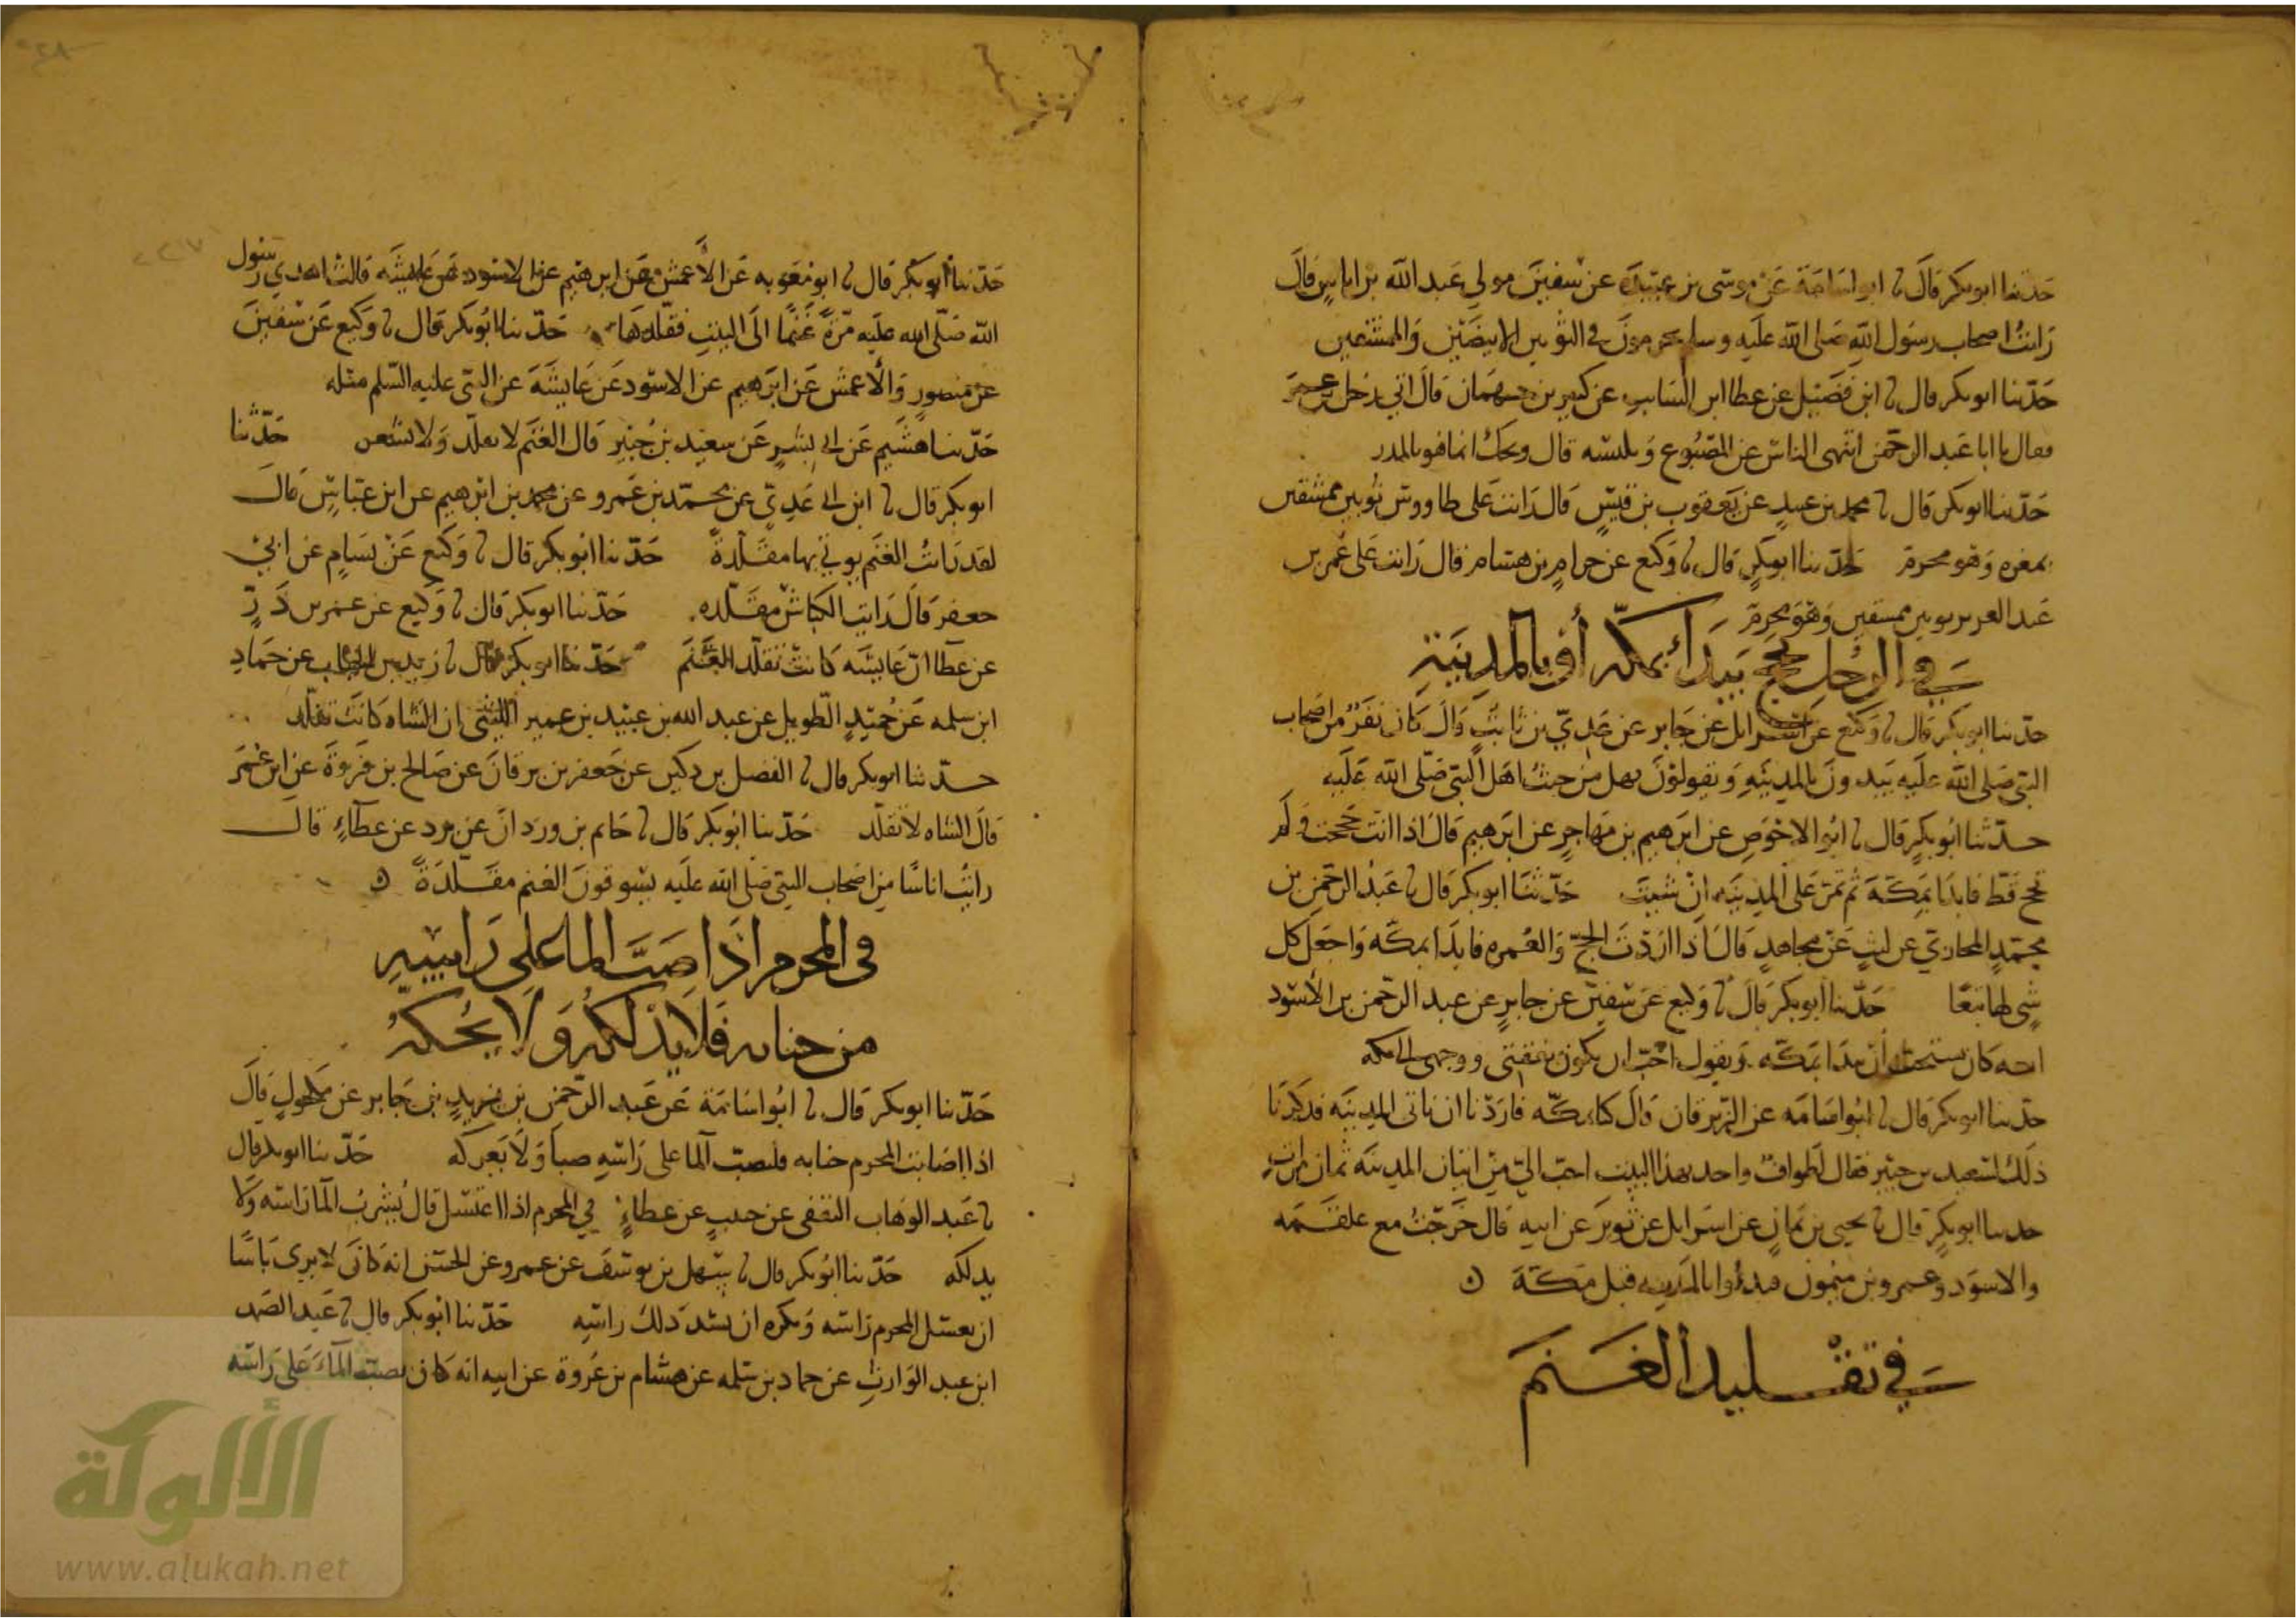 حدثنا ابو بكر قال نا ابو اسامة عن موسى بن عبيدة عن سفين مولي عبد الله بن اياس قال
رايت اصحاب رسول الله صلى الله عليه وسلم يحرمون في الثوبين الابيضين والممشقين
حدثنا ابو بكر قال نا ابن فضيل عن عطا ابن السايب عن كثير بن جمهان قال اتي رجل عمر
فقال يا ابا عبد الرحمن اتنهى الناس عن المصبوغ وتلبسه قال ويحك انما هو بالمدر
حدثنا ابو بكر قال نا محمد بن عبيد عن يعقوب بن قيس قال رايت على طاووس ثوبين ممشقين
بمغره وهو محرم حدثنا ابو بكر قال نا وكيع عن حرام بن هشام قال رايت على عمر بن
عبد العزيز ثوبين ممشقين وهو محرم
في الرجل يحج يبدأ بمكه أو بالمدينة
حدثنا ابو بكر قال نا وكيع عن اسرايل عن جابر عن عدي بن ثابت قال كان نفر من اصحاب
النبي صلى الله عليه يبدون بالمدينه ويقولون نهل من حيث اهل النبي صلى الله عليه
حدثنا ابو بكر قال نا ابو الاحوص عن ابرهيم بن مهاجر عن ابرهيم قال اذا انت حججت ولم
تحج قط فابدا بمكة ثم تمر على المدينه ان شيت حدثنا ابو بكر قال نا عبد الرحمن بن
محمد المحاربي عن ليث عن مجاهد قال اذا اردت الحج والعمره فابدا بمكه واجعل كل
شي لها تبعا حدثنا ابو بكر قال نا وكيع عن سفين عن جابر عن عبد الرحمن بن الاسود
انه كان يستحب ان يبدا بمكه ويقول احب ان يكون نفقتي ووجهي الى مكه
حدثنا ابو بكر قال نا ابو اسامه عن الزبرقان قال كنا بمكه فاردنا ان ناتي المدينه فذكرنا
ذلك لسعيد بن جبير فقال لطواف واحد بهذا البيت احب الي من اتيان المدينه ثمان مرات
حدثنا ابو بكر قال نا يحيى بن يمان عن اسرايل عن ثوير عن ابيه قال خرجت مع علقمه
والاسود وعمرو بن ميمون فبدؤوا بالمدينه قبل مكة
في تقليد الغنم
حدثنا أبو بكر قال نا ابو معويه عن الأعمش عن ابرهيم عن الاسود عن عايشه قالت اهدي رسول
الله صلى الله عليه مرة غنما الى البيت فقلدها حدثنا ابو بكر قال نا وكيع عن سفين
عن منصور والأعمش عن ابرهيم عن الاسود عن عايشة عن النبي عليه السلم مثله
حدثنا هشيم عن ابي بشر عن سعيد بن جبير قال الغنم لا تقلد ولا تشعر حدثنا
ابو بكر قال نا ابن ابي عدي عن محمد بن عمرو عن محمد بن ابرهيم عن ابن عباس قال
لقد رايت الغنم يوتي بها مقلدة حدثنا ابو بكر قال نا وكيع عن بسام عن ابي
جعفر قال رايت الكباش مقلده حدثنا ابو بكر قال نا وكيع عن عمر بن ذر
عن عطا ان عايشه كانت تقلد الغنم حدثنا ابو بكر قال نا زيد بن الحباب عن حماد
ابن سلمه عن حميد الطويل عن عبد الله بن عبيد بن عمير الليثي ان الشاه كانت تقلد
حدثنا ابو بكر قال نا الفضل بن دكين عن جعفر بن برقان عن صالح بن فروة عن ابن عمر
قال الشاه لا تقلد حدثنا ابو بكر قال نا حاتم بن وردان عن برد عن عطاء قال
رايت اناسا من اصحاب النبي صلى الله عليه يسوقون الغنم مقلدة
في المحرم اذا صب الما على راسه
من جنابه فلا يدلكه ولا يحكه
حدثنا ابو بكر قال نا ابو اسامة عن عبد الرحمن بن يزيد بن جابر عن مكحول قال
اذا اصابت المحرم جنابه فليصب الما على راسه صبا ولا يعركه حدثنا ابو بكر قال
نا عبد الوهاب الثقفي عن حبيب عن عطاء في المحرم اذا اغتسل قال يشرب الما راسه ولا
يدلكه حدثنا ابو بكر قال نا سهل بن يوسف عن عمرو عن الحسن انه كان لا يرى باسا
ان يغسل المحرم راسه ويكره ان يشد دلك راسه حدثنا ابو بكر قال نا عبد الصمد
ابن عبد الوارث عن حماد بن سلمه عن هشام بن عروة عن ابيه انه كان يصب الماء على راسه
الألوكة
www.alukah.net